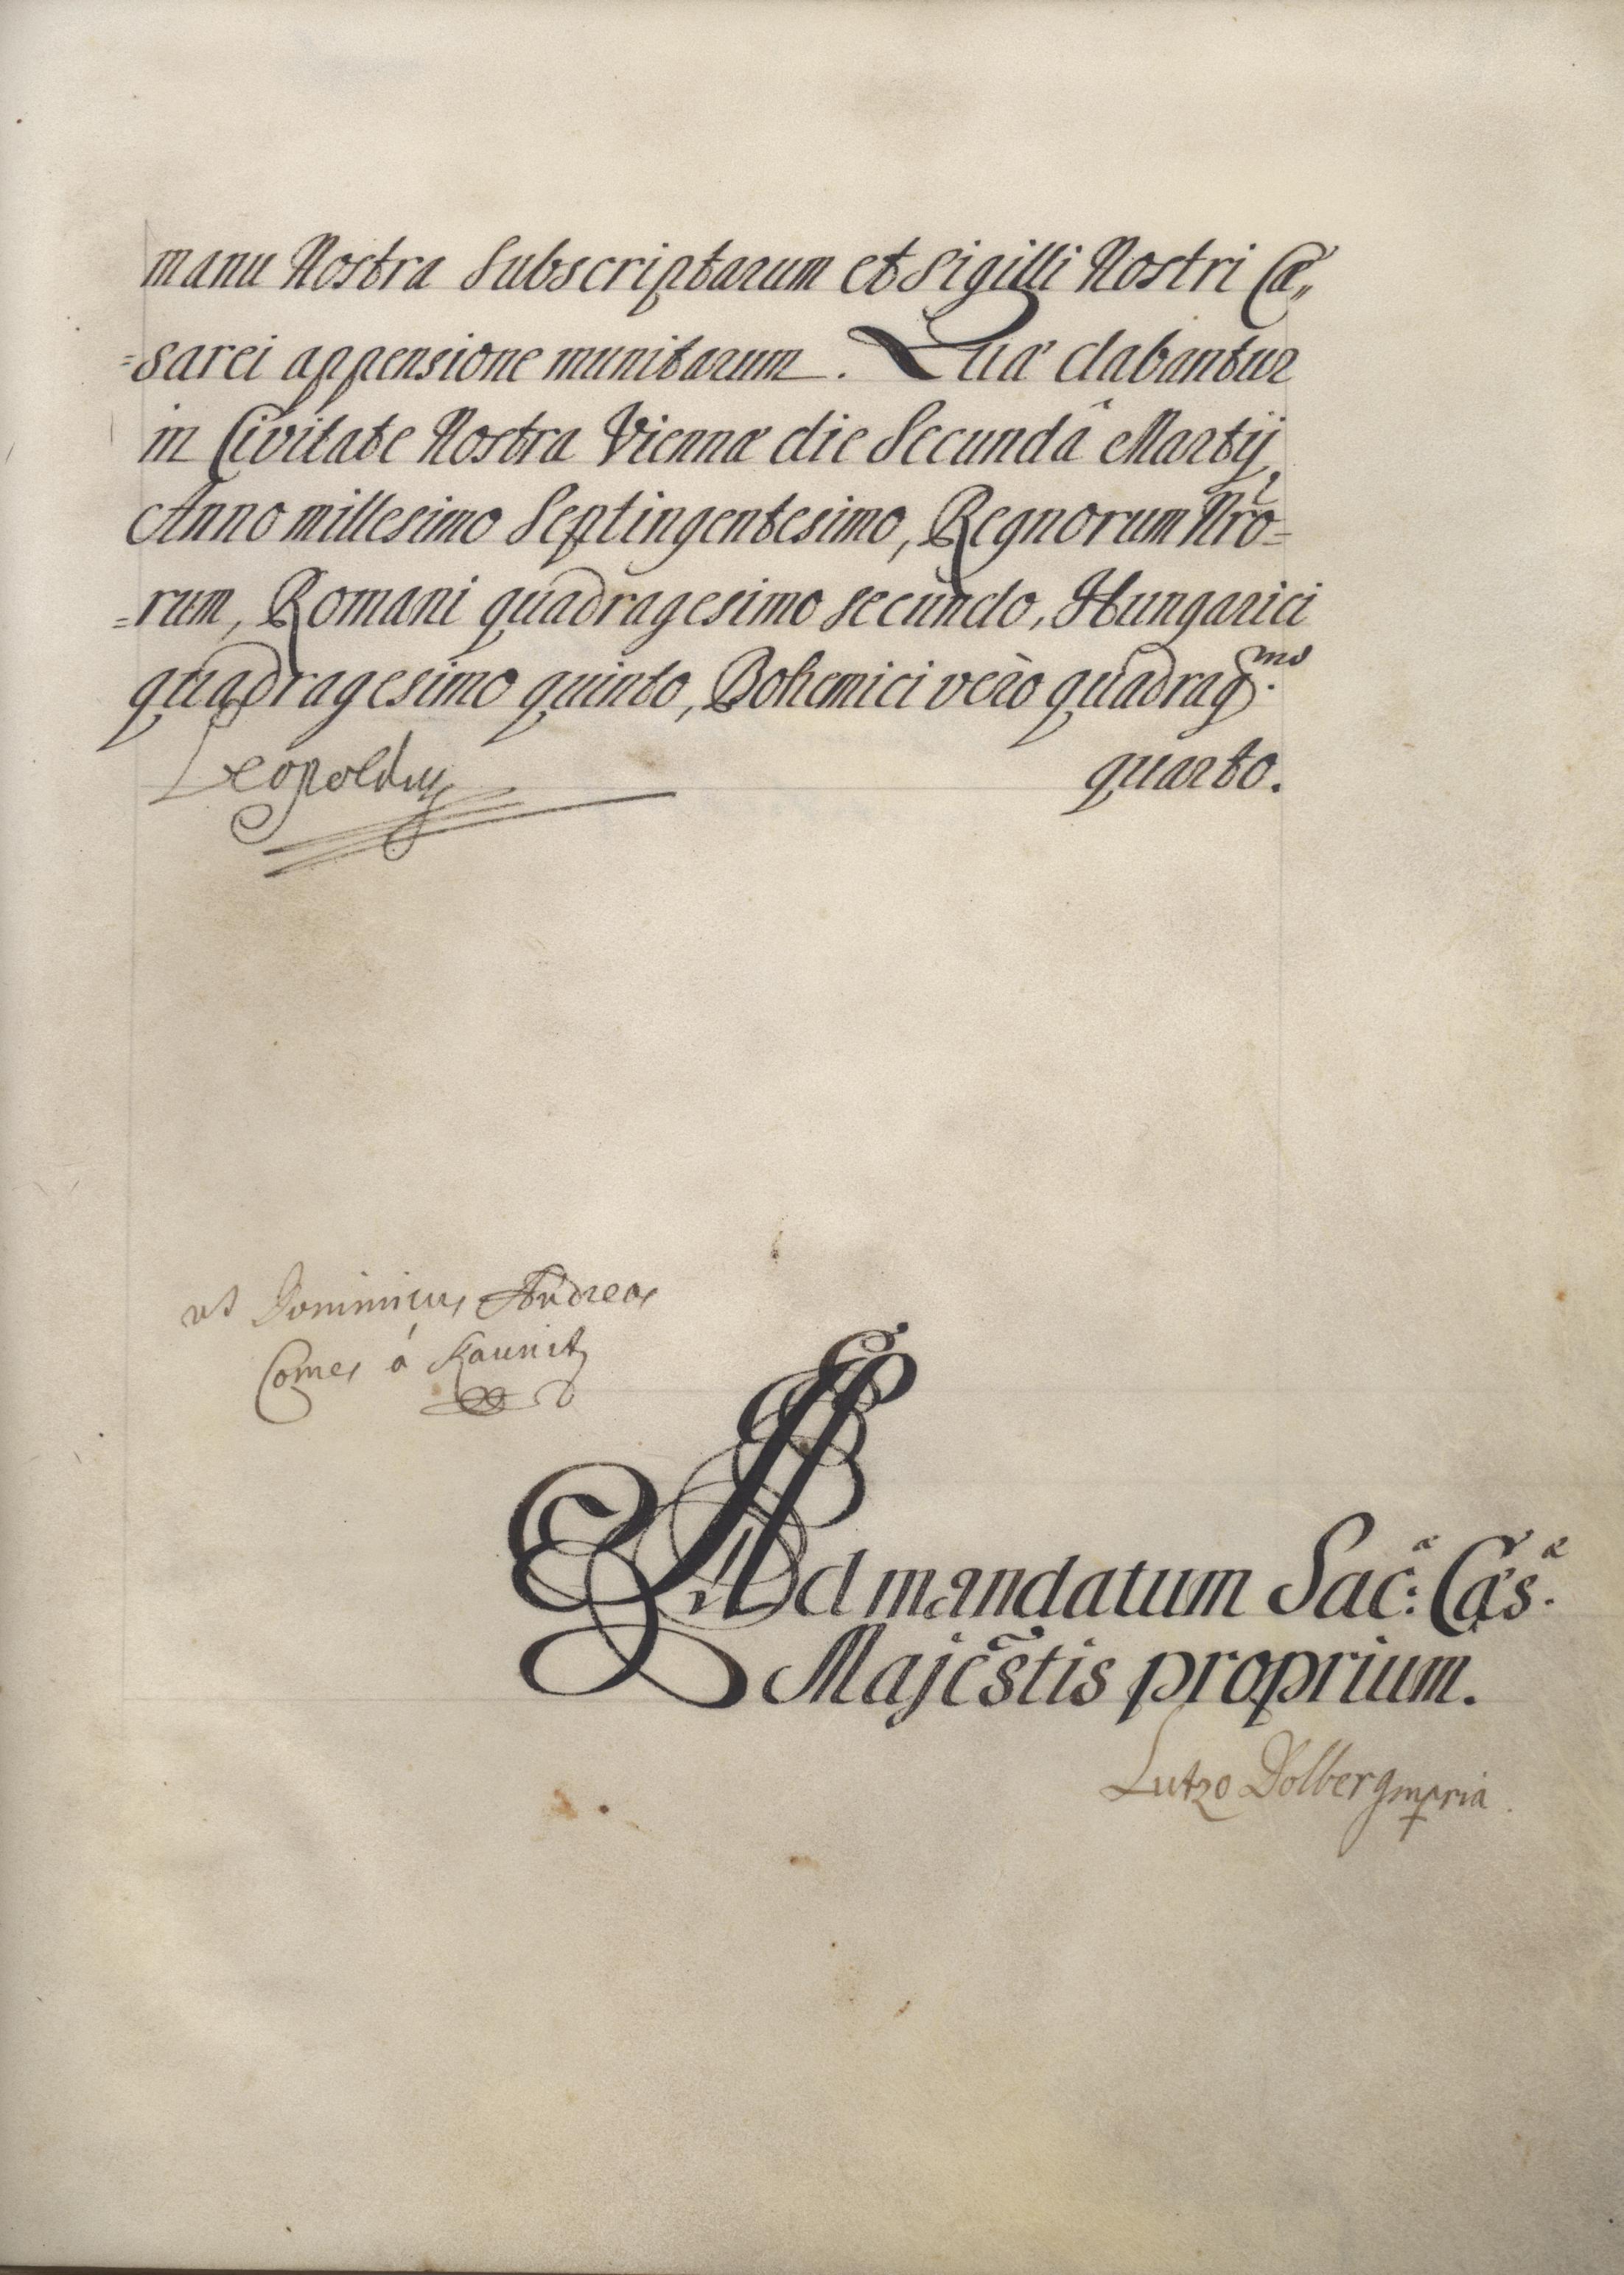 manu Nostra Subscriptarum et Sigilli Nostri Cæ„
=sarei appensione munitarum. Quæ dabantur
in Civitate Nostra Viennæ die Secundâ Martij,
Anno millesimo Septingentesimo, Regnorum Nr̃o=
=rum, Romani quadragesimo secundo, Hungarici
quadragesimo quinto, Bohemici verò quadrag.mo
quarto.
Leopoldus
vt Dominicus Andreas
Comes à Kaunitz
Ad mandatum Sac:æ Cæs.æ
Majes̃tis proprium.
Lutzo Dolberg mpria.